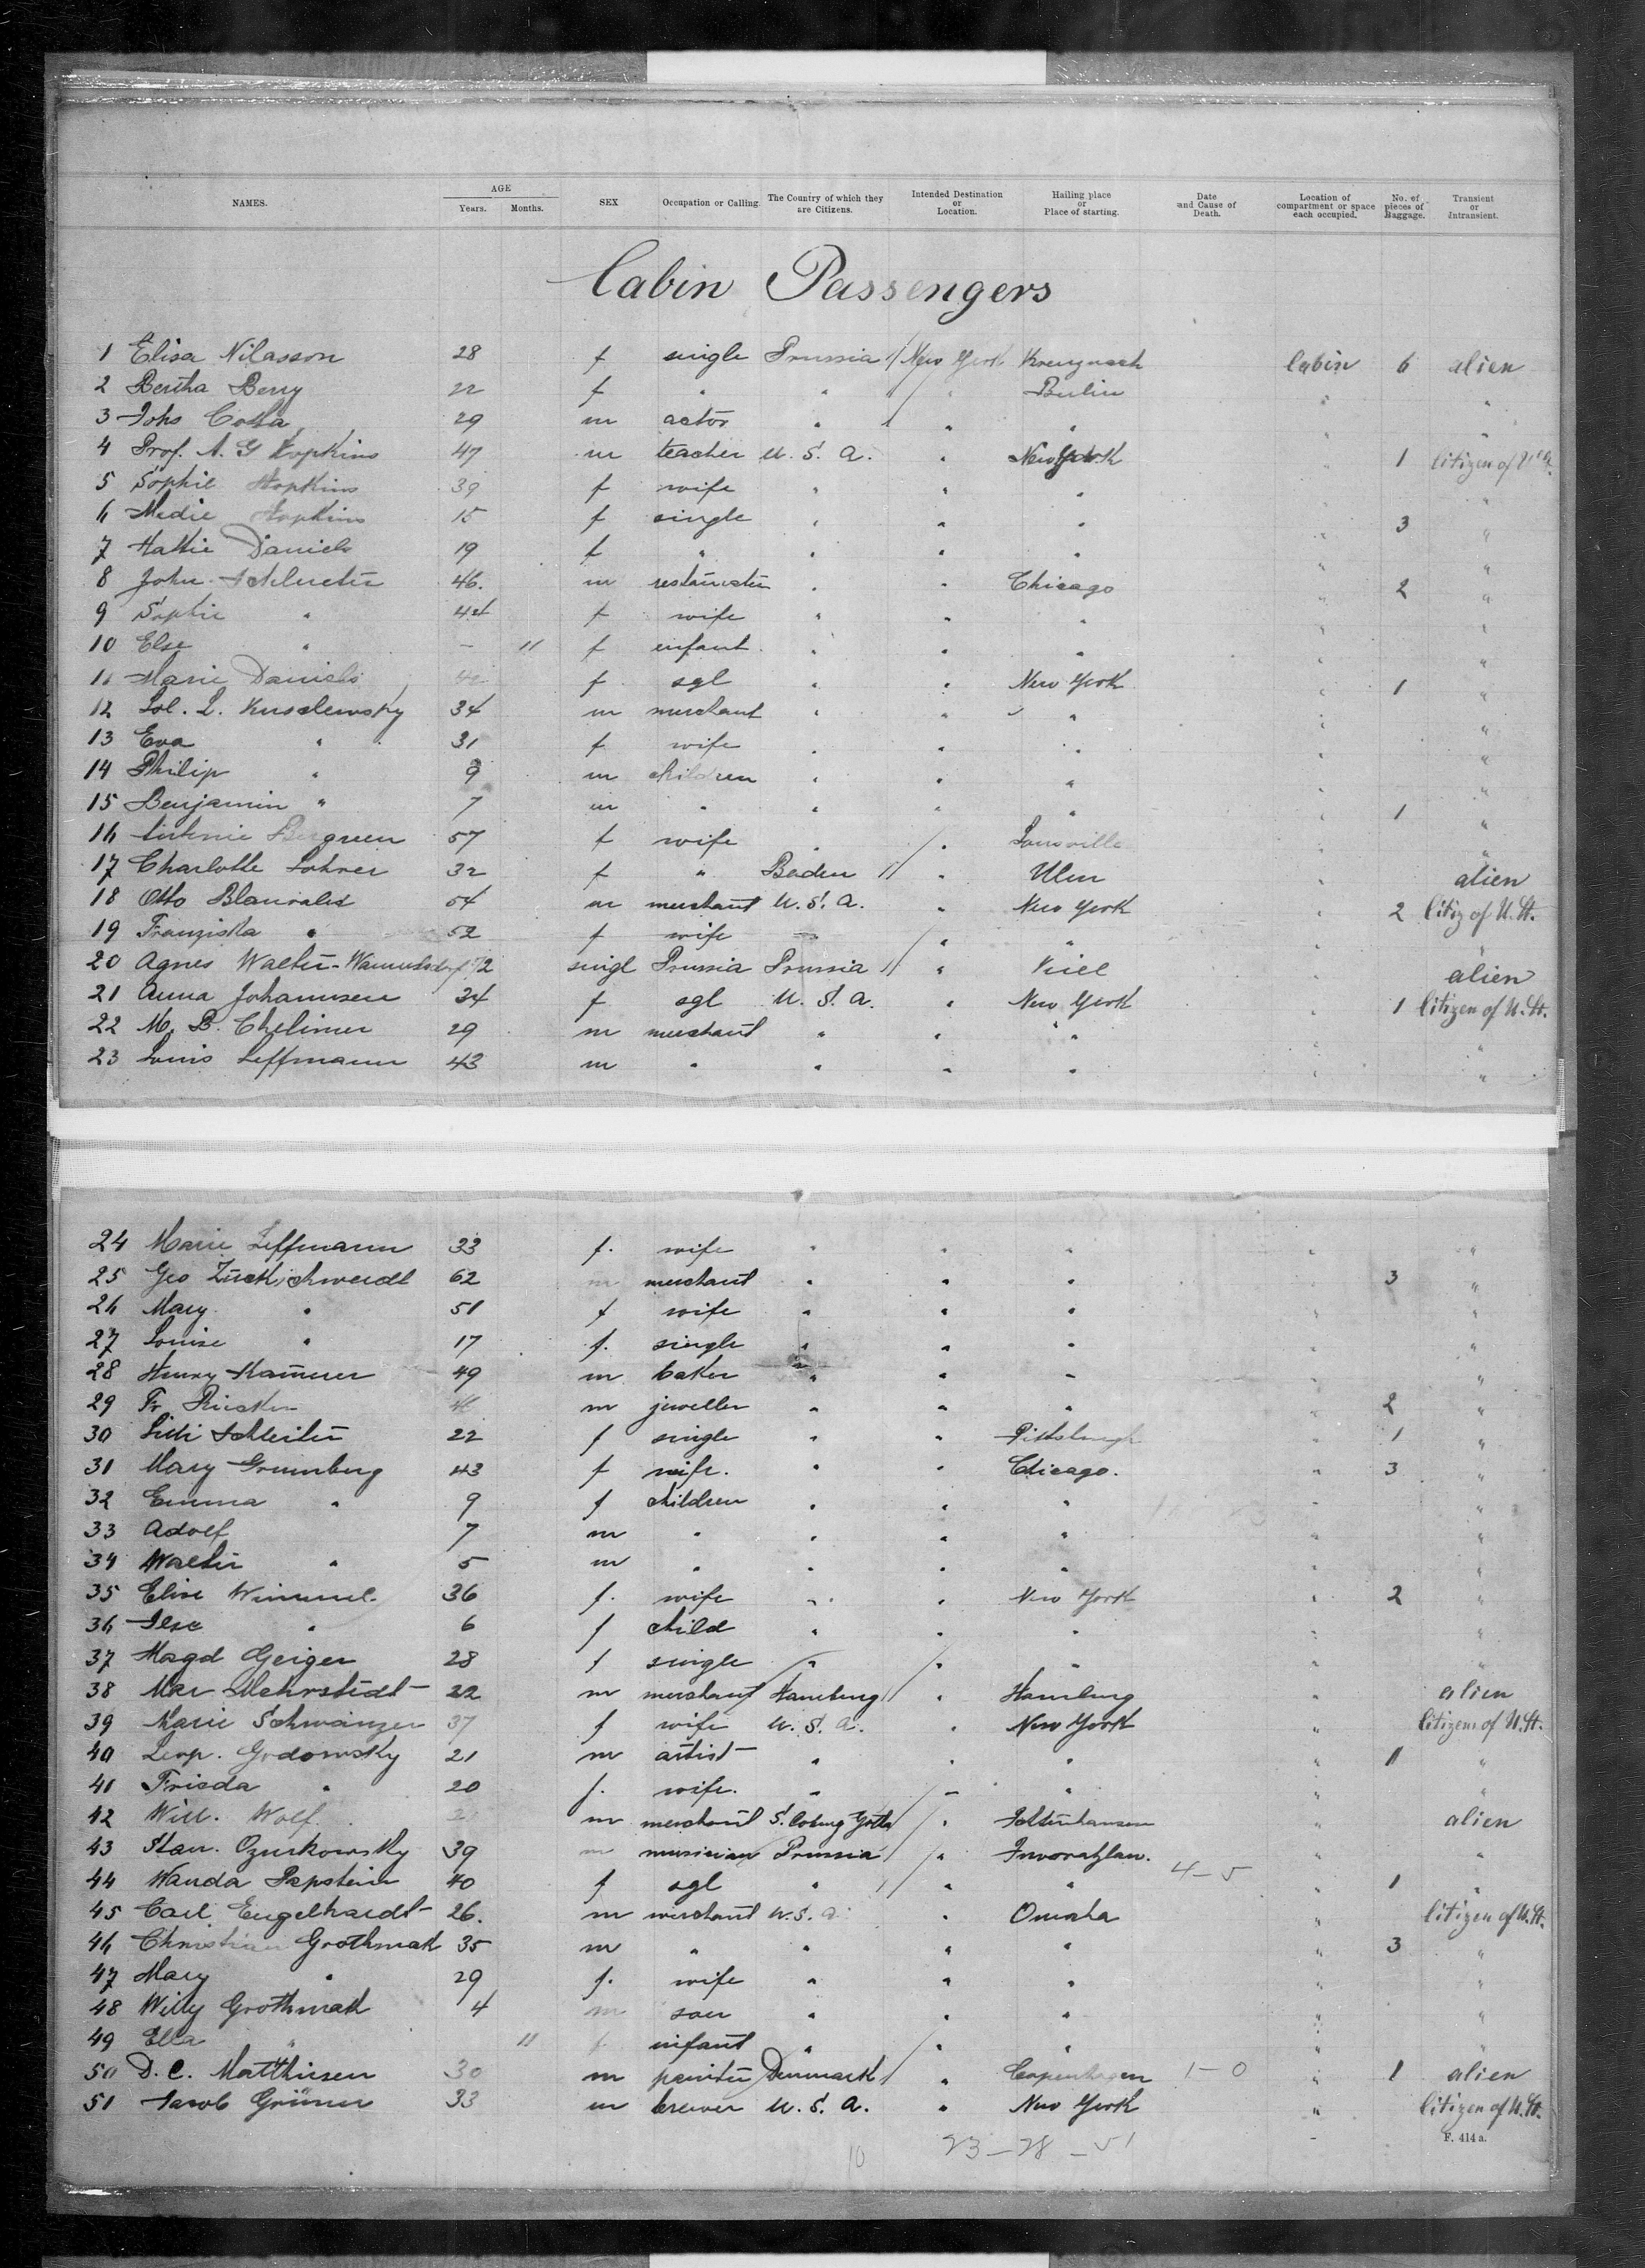 NAMES. AGE Years. Months. SEX Occupation or Calling. The Country of which they are Citizens. Intended Destination or Location. Hailing place or Place of starting. Date and Cause of Death. Location of compartment or space each occupied. No. of pieces of Baggage. Transient or Intransient.
Cabin Passengers
1 Elisa Nilasson 28 f single Prussia New York Kreuznach Cabin 6 alien
2 Bertha Berry 22 f " " " Berlin " "
3 Johs Cotta 29 m actor " " " " "
4 Prof. A. G Hopkins 47 m teacher U. S. A. " New York " 1 Citizen of
5 Sophie Hopkins 39 f wife " " " " "
6 Medie Hopkins 15 f single " " " " 3 "
7 Hattie Daniels 19 f " " " " " "
8 John Schlueter 46. m " " Chicago " 2 "
9 Sophie " 44 f wife " " " " "
10 Else " – 11 f enfant " " " " "
11 Marie Daniels f sgl " " New York " 1 "
12 L. 34 m merchant " " " " "
13 Eva " 31 f wife " " " " "
14 Philip " 9 m children " " " " "
15 Benjamin " 7 m " " " " " 1 "
16 57 f wife " " Louisville " "
17 Charlotte Lohrer 32 f " Baden " Ulm " alien
18 Otto 54 m merchant U. S. A. " New York " 2 Citiz of U. St.
19 Franziska " 52 f wife " " " " "
20 Agnes Walter- 72 singl Prussia Prussia " Kiel alien
21 Anna Johannsen 34 f sgl U. S. A. " New York " 1 Citizen of U. St.
22 M. B. Chelimer 29 m merchant " " " " "
23 Louis Leffmann 43 m " " " " " "
24 Marie Leffmann 33 f. wife " " " " "
25 Geo Zuckschwerdt 62 m merchant " " " " 3 "
26 Mary " 51 f wife " " " " "
27 Louise " 17 f. single " " " " "
28 Henry Hammer 49 m baker " " " " "
29 Fr m jeweller " " " " 2 "
30 Schleiter 22 f single " " Pittsburgh " 1 "
31 Mary Grunberg 43 f wife. " " Chicago. " 3 "
32 Emma " 9 f children " " " " "
33 Adolf 7 m " " " " " "
34 Walter " 5 m " " " " " "
35 Elise Wimmel 36 f. wife " " New York " 2 "
36 Ilse " 6 f child " " " " "
37 Magd Geiger 28 f single " " " " "
38 Max Mehrstedt 22 m merchant Hamburg " Hamburg " alien
39 Marie Schwanzer 37 f wife U. S. A. " New York " Citizens of U. St.
40 Leop. Godowsky 21 m artist " " " " 1 "
41 Frieda " 20 f. wife. " " " " "
42 Will. Wolf m merchant S. Coburg Gotha " " alien
43 Stan. Ozurkowsky 39 m musician Prussia " Inowrazlaw. " "
44 Wanda Papstein 40 f sgl " " " 4–5 " 1 "
45 Carl Engelhardt 26. m merchant U. S. A. " Omaha " Citizen of U. St.
46 Christian Grothmak 35 m " " " " " 3 "
47 Mary " 29 f. wife " " " " "
48 Willy Grothmak 4 m son " " " " "
49 Ella " 11 f infant " " " " "
50 D. C. Matthiesen 30 m painter Denmark " Copenhagen 1–0 " 1 alien
51 Jacob Grüner 33 m brewer U. S. A. " New York " Citizen of U. St.
F. 414 a.
10 23–28–51